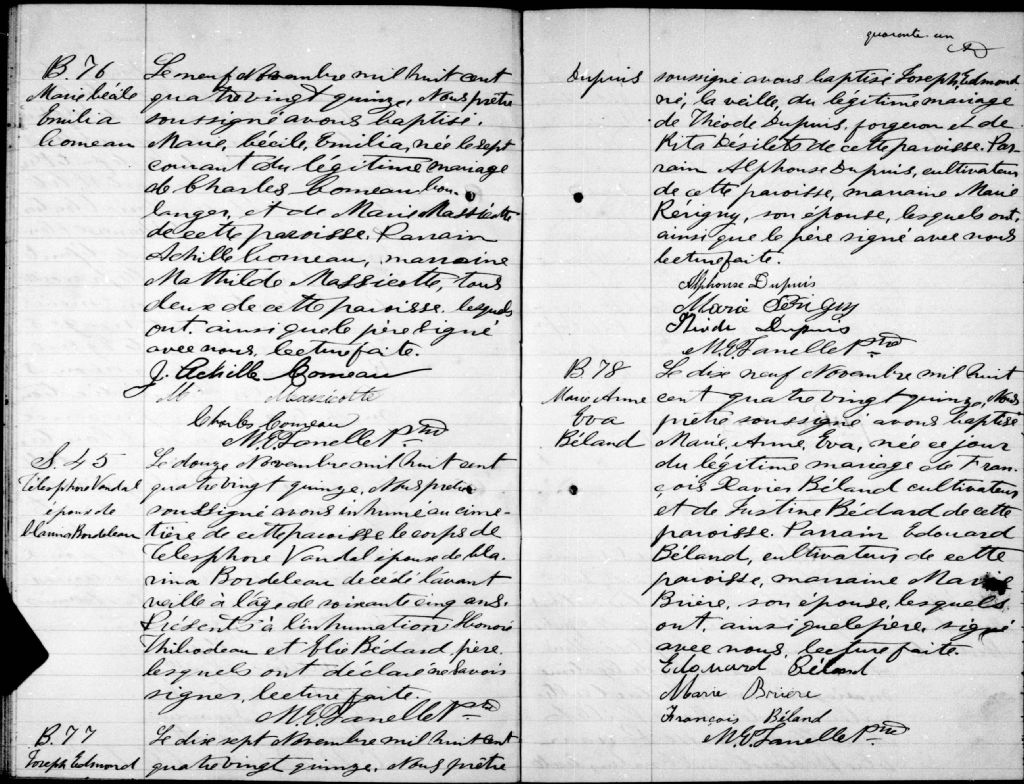 B. 76
Marie Cécile
Emilia
Comeau
Le neuf Novembre mil huit cent
quatre vingt quinze, Nous prêtre
soussigné avons baptisé.
Marie, Cécile, Emilia, née le sept
courant du légitime mariage
de Charles Comeau bou-
langer, et de Marie Massicotte
de cette paroisse. Parrain
Achille Comeau, marraine
Mathilde Massicotte, tous
deux de cette paroisse, lesquels
ont, ainsi que le père signé
avec nous, lecture faite.
J. Achille Comeau
M Massicotte
Charles Comeau
Ptre
S. 45
Télesphore Vandal
époux de
Clarina Bordeleau
Le douze Novembre mil huit cent
quatre vingt quinze, Nous prêtre
soussigné avons inhumé au cime-
tière de cette paroisse le corps de
Télesphore Vandal époux de Cla-
rina Bordeleau décédé l'avant
veille à l'âge de soixante cinq ans.
Présents à l'inhumation: Honoré
Thibodeau et Elie Bédard, père,
lesquels ont déclaré ne savoir
signer, lecture faite.
Ptre
B. 77
Joseph Edmond
Le dix sept Novembre mil huit cent
quatre vingt quinze, Nous prêtre
quarante-un
Dupuis
soussigné avons baptisé Joseph, Edmond
né, la veille, du légitime mariage
de Théode Dupuis, forgeron et de
Rita Désilets de cette paroisse. Par-
rain Alphonse Dupuis, cultivateur
de cette paroisse, marraine Marie
Périgny, son épouse, lesquels ont,
ainsi que le père signé avec nous
lecture faite.
Alphonse Dupuis
Marie Périgny
Théode Dupuis
Ptre
B. 78
Marie Anne
Eva
Béland
Le dix neuf Novembre mil huit
cent quatre vingt quinze, Nous
prêtre soussigné avons baptisé
Marie, Anne, Eva, née ce jour
du légitime mariage de Fran-
çois Xavier Béland cultivateur
et de Justine Bédard de cette
paroisse. Parrain Edouard
Béland, cultivateur de cette
paroisse, marraine Marie
Brière, son épouse, lesquels,
ont, ainsi que le père, signé
avec nous, lecture faite.
Edouard Béland
Marie Brière
François Béland
Ptre